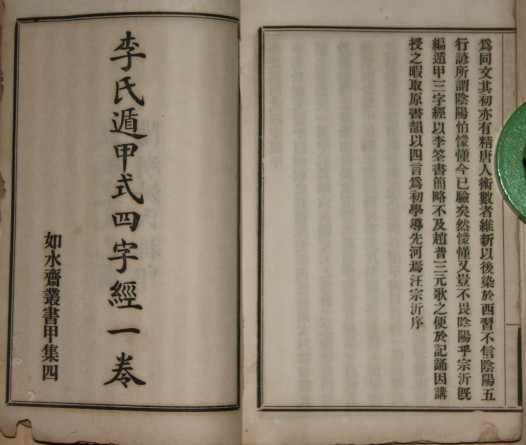 爲同文其初亦有精唐人術數者維新以後染於西習不信陰陽五
行諺所謂陰陽怕懞懂今已驗矣然懞懂又豈不畏陰陽乎宗沂旣
編遁甲三字經以李筌書簡略不及趙普三元歌之便於記誦因講
授之暇取原書韻以四言爲初學導先河焉汪宗沂序
李氏遁甲式四字經一卷
如水齋叢書甲集四